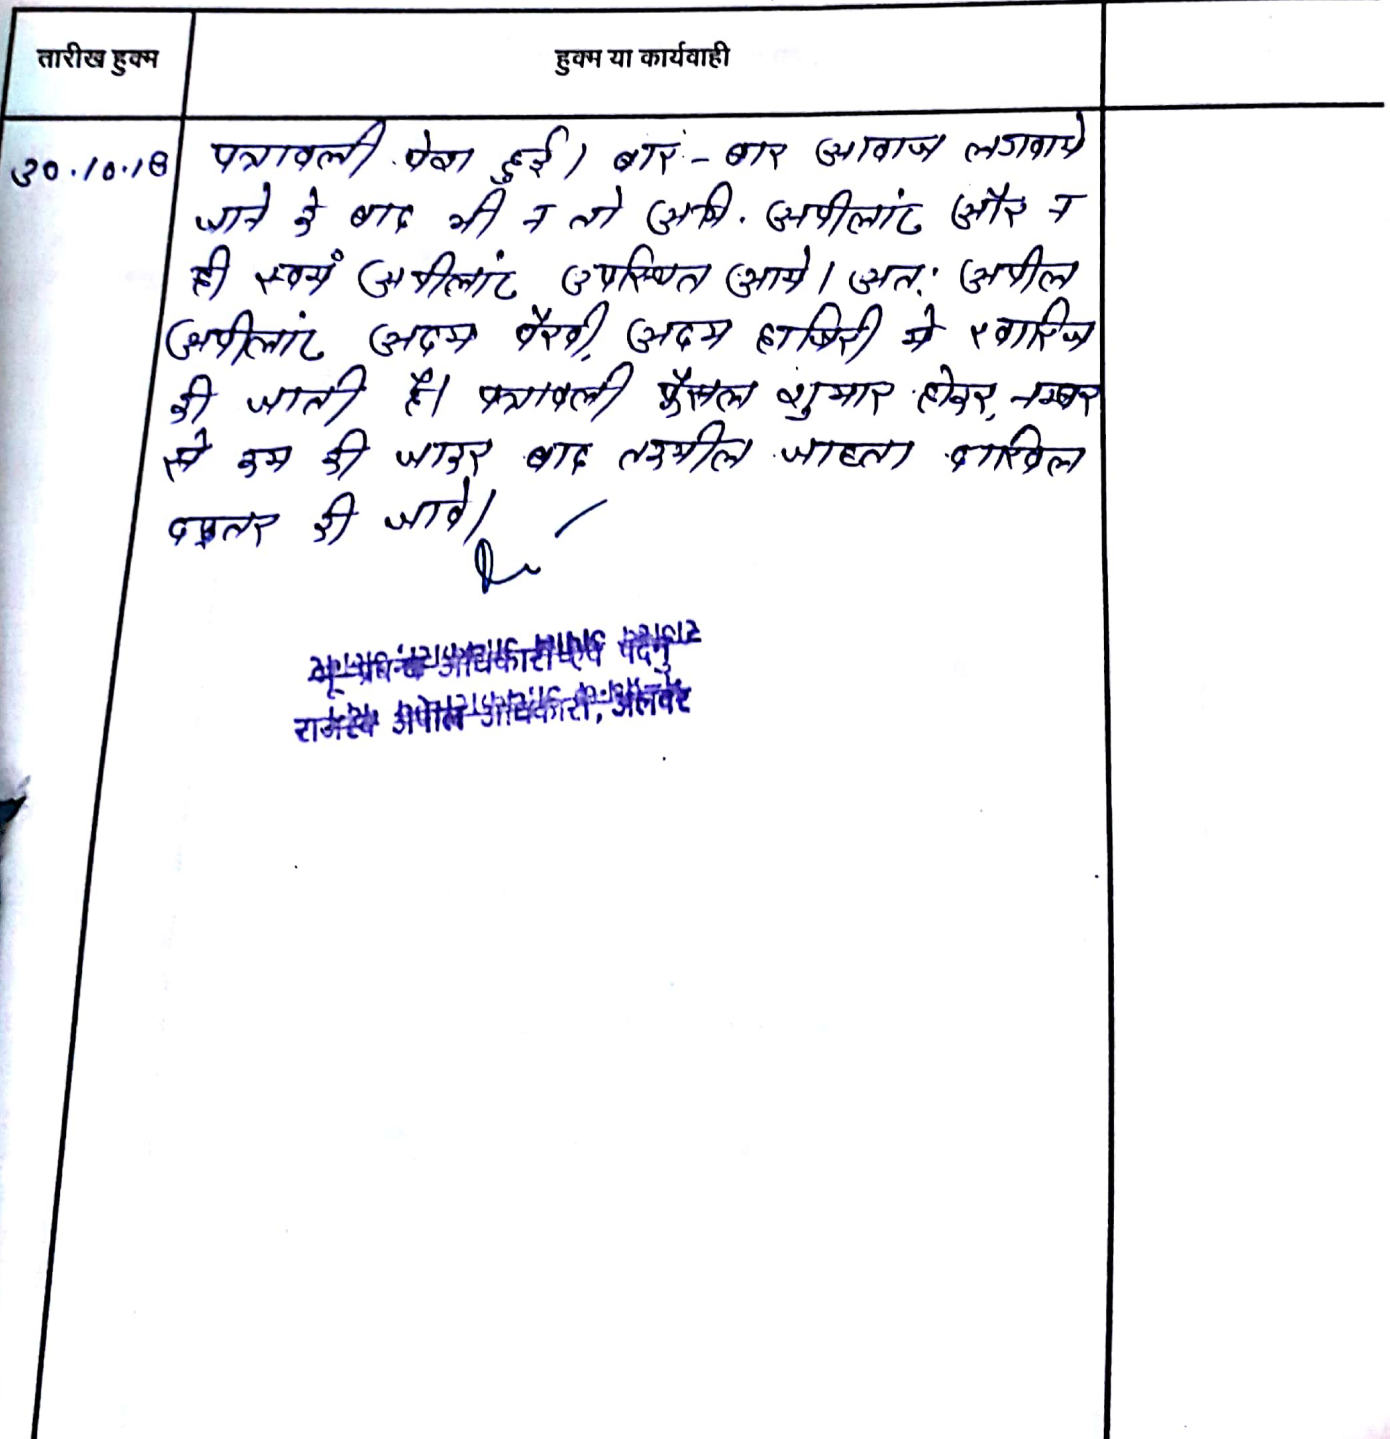 तारीख हुक्म
हुक्म या कार्यवाही
30.10.18
पत्रावली पेश हुई। बार-बार आवाज लगवाये
जाने के बाद भी न तो अभि. अपीलांट और न
ही स्वयं अपीलांट उपस्थित आये। अतः अपील
अपीलांट अदम पैरवी, अदम हाजिरी मे खारिज
की जाती है। पत्रावली फैसल शुमार होकर, नम्बर
से कम की जाकर बाद तकमील जाब्ता दाखिल
दफ्तर की जावे।
भू-प्रबन्ध अधिकारी एवं पदेन
राजस्व अपील अधिकारी, अलवर